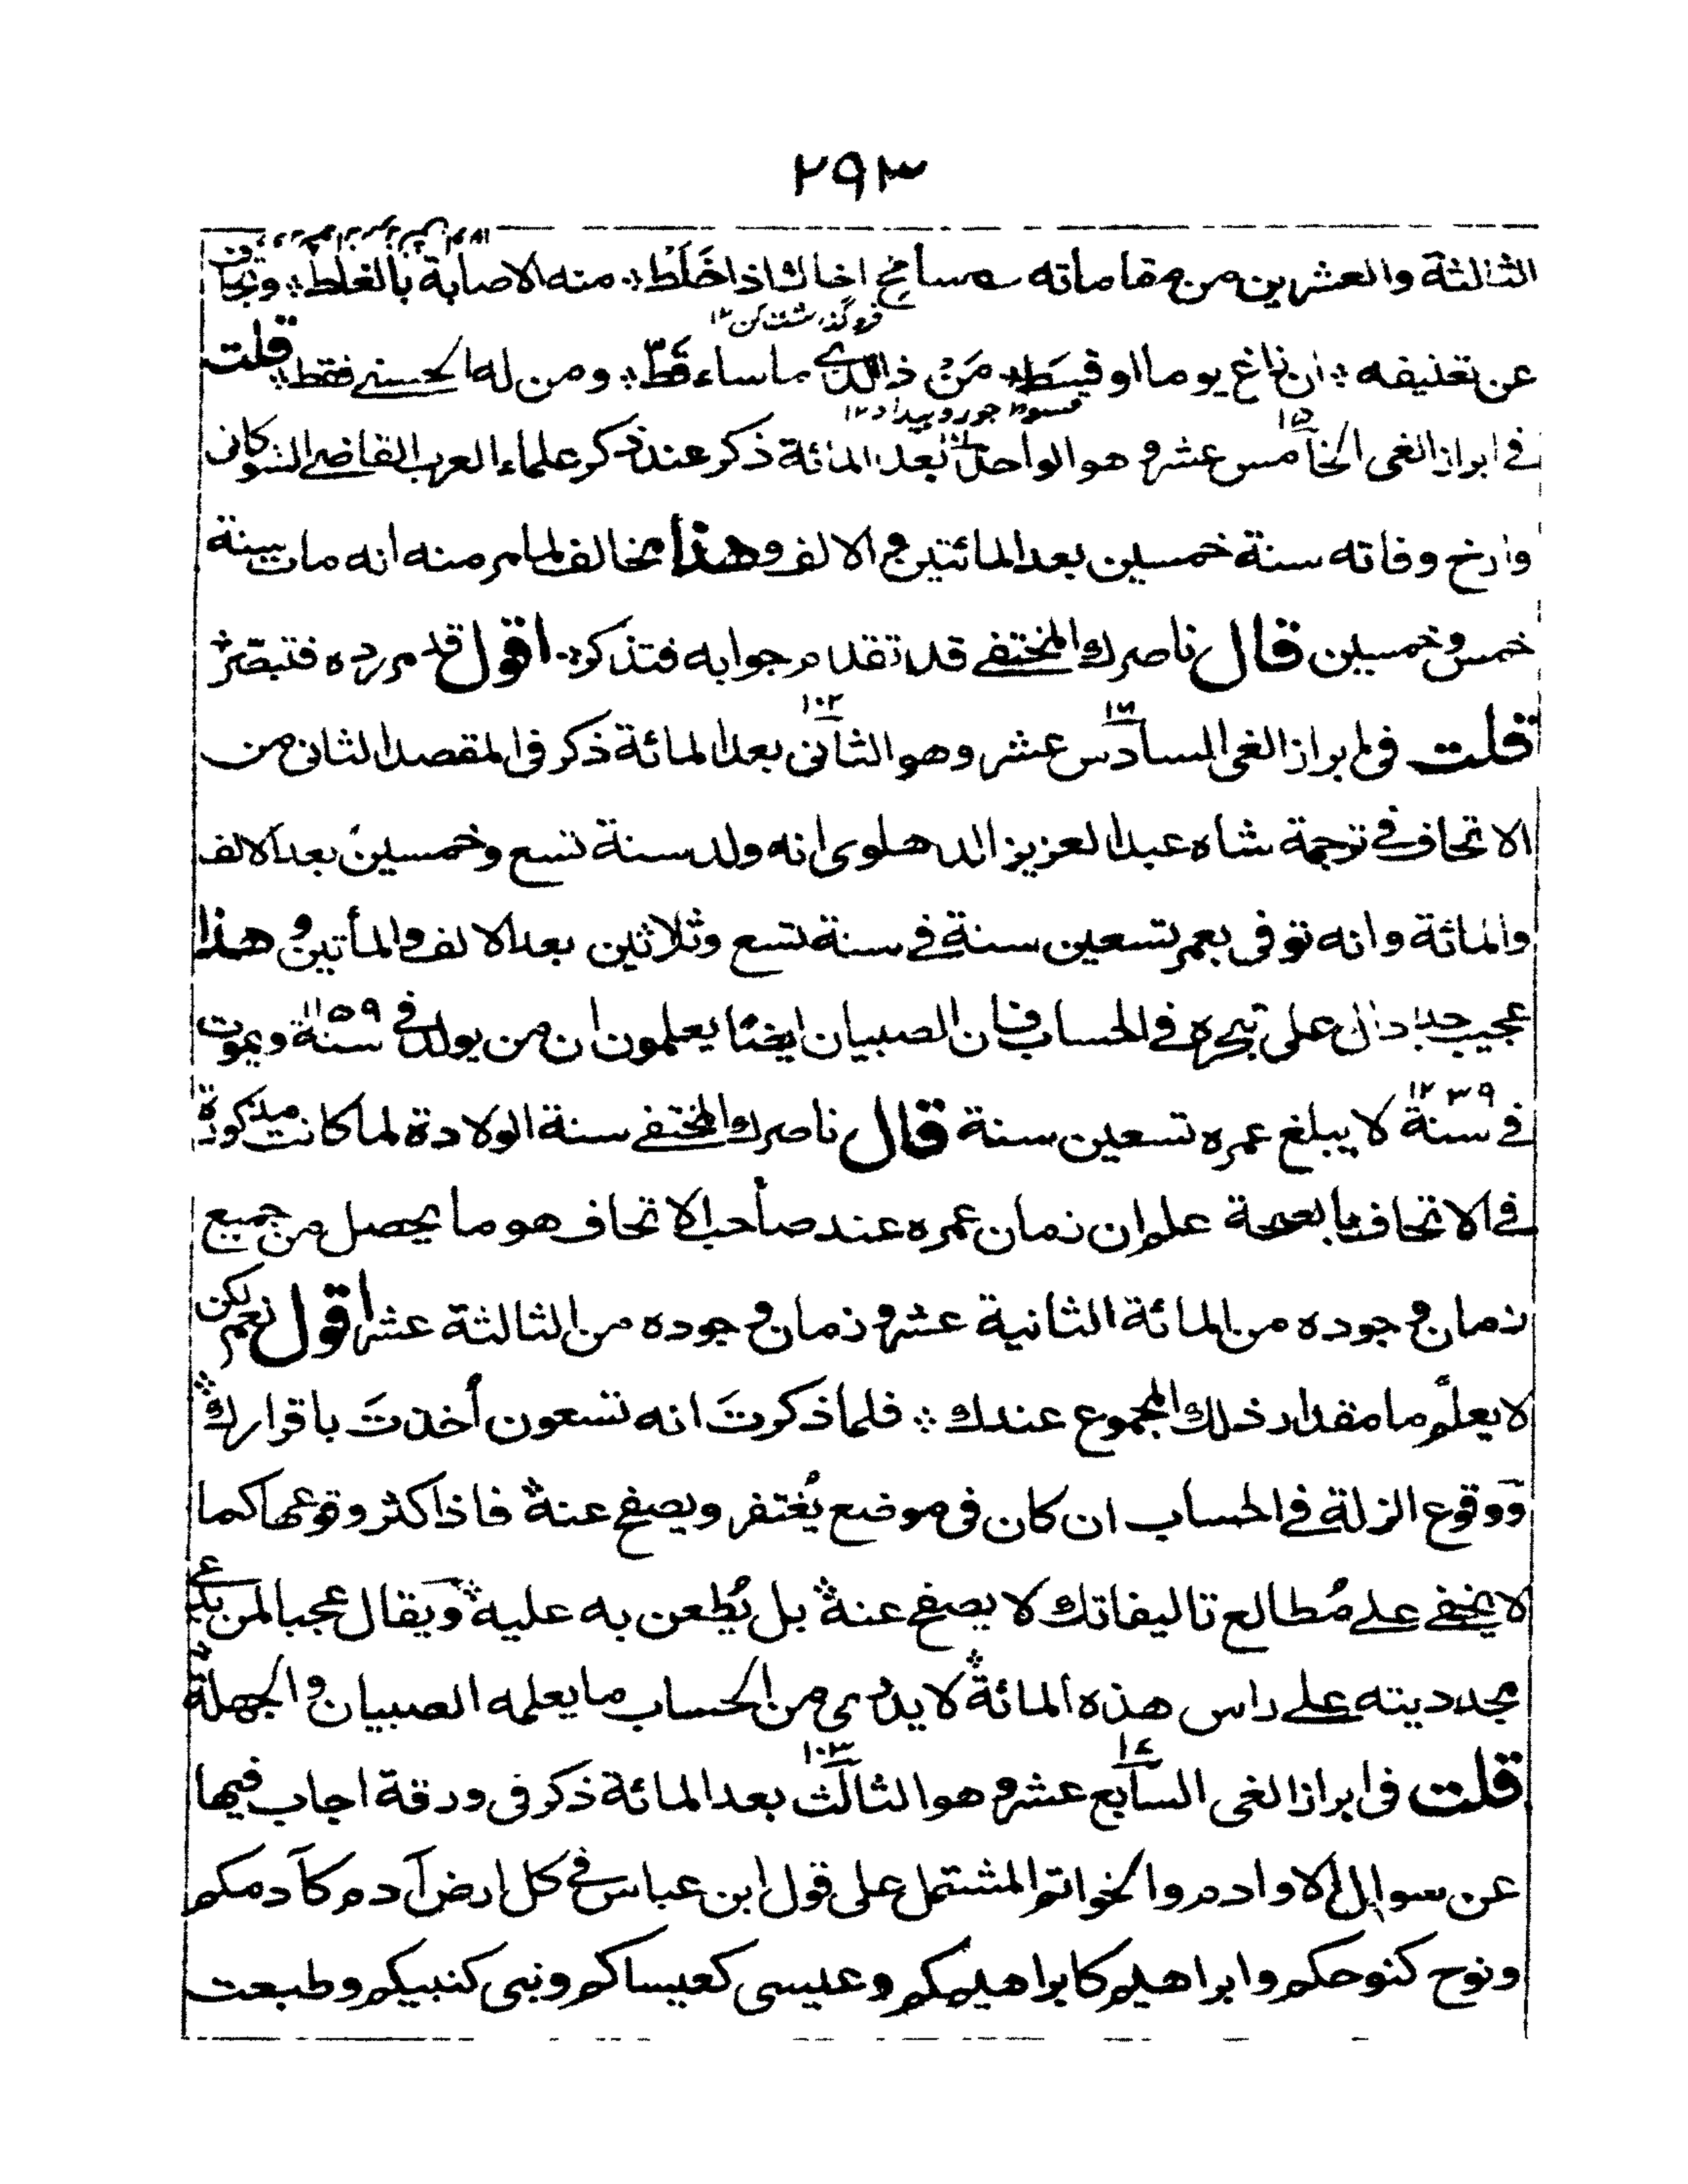 ٢٩٣
الثالثة والعشرين من مقاماته سه سامح اخاك اذا خَلَطْ ؞ منه الاصابة بالغلط ؞ وتجاف
فرو گذاشت کن ١٢
عن تعنيفه ؞ ان زاغ يوما او قسط ؞ مَنْ ذا الذي ما ساء قطّ ؞ ومن له الحسنى فقط ؞ قلت
جور و بيداد ١٢
١٥
في ابراز الغى الخامس عشر و هو الواحد بعد المائة ذكر عند ذكر علماء العرب القاضى الشوكانى
وارخ وفاته سنة خمسين بعد المائتين و الالف وهذا مخالف لما مر منه انه مات سنة
خمس وخمسين قال ناصرك المختفى قد تقدم جوابه فتذكر ؞ اقول قد مر رده فتبصّر ؞
١٦ ١٠٢
قلت فى ابراز الغى السادس عشر وهو الثانى بعد المائة ذكر فى المقصد الثانى من
الاتحاف في ترجمة شاه عبد العزيز الدهلوى انه ولد سنة تسع وخمسين بعد الالف
والمائة وانه توفى بعمر تسعين سنة في سنة تسع وثلاثين بعد الالف والمأتين و هذا
عجيب جدا دال على تبحره في الحساب فان الصبيان ايضا يعلمون ان من يولد في سنة ١١٥٩ ويموت
في سنة ١٢٣٩ لا يبلغ عمره تسعين سنة قال ناصرك المختفى سنة الولادة لما كانت مذكورة
في الاتحاف بالصحة علم ان زمان عمره عند صاحب الاتحاف هو ما يحصل من جميع
زمان وجوده من المائة الثانية عشر و زمان وجوده من الثالثة عشر اقول نعم لكن
لا يعلم ما مقدار ذلك المجموع عندك ؞ فلما ذكرتَ انه تسعون أُخذتَ باقرارك ؞
ووقوع الزلة في الحساب ان كان فى موضع يُغتفر ويصفح عنه ؞ فاذا كثر وقوعها كما
لا يخفى على مُطالع تاليفاتك لا يصفح عنه ؞ بل يُطعن به عليه ؞ ويقال عجبا لمن يدعى
مجدديته على راس هذه المائة ؞ لا يدرى من الحساب ما يعلمه الصبيان و الجهلة ؞
١٧ ١٠٣
قلت فى ابراز الغى السابع عشر و هو الثالث بعد المائة ذكر فى ورقة اجاب فيها
عن سوال الاوادم والخواتم المشتمل على قول ابن عباس في كل ارض آدم كآدمكم
ونوح كنوحكم وابراهيم كابراهيمكم وعيسى كعيساكم ونبى كنبيكم وطبعت